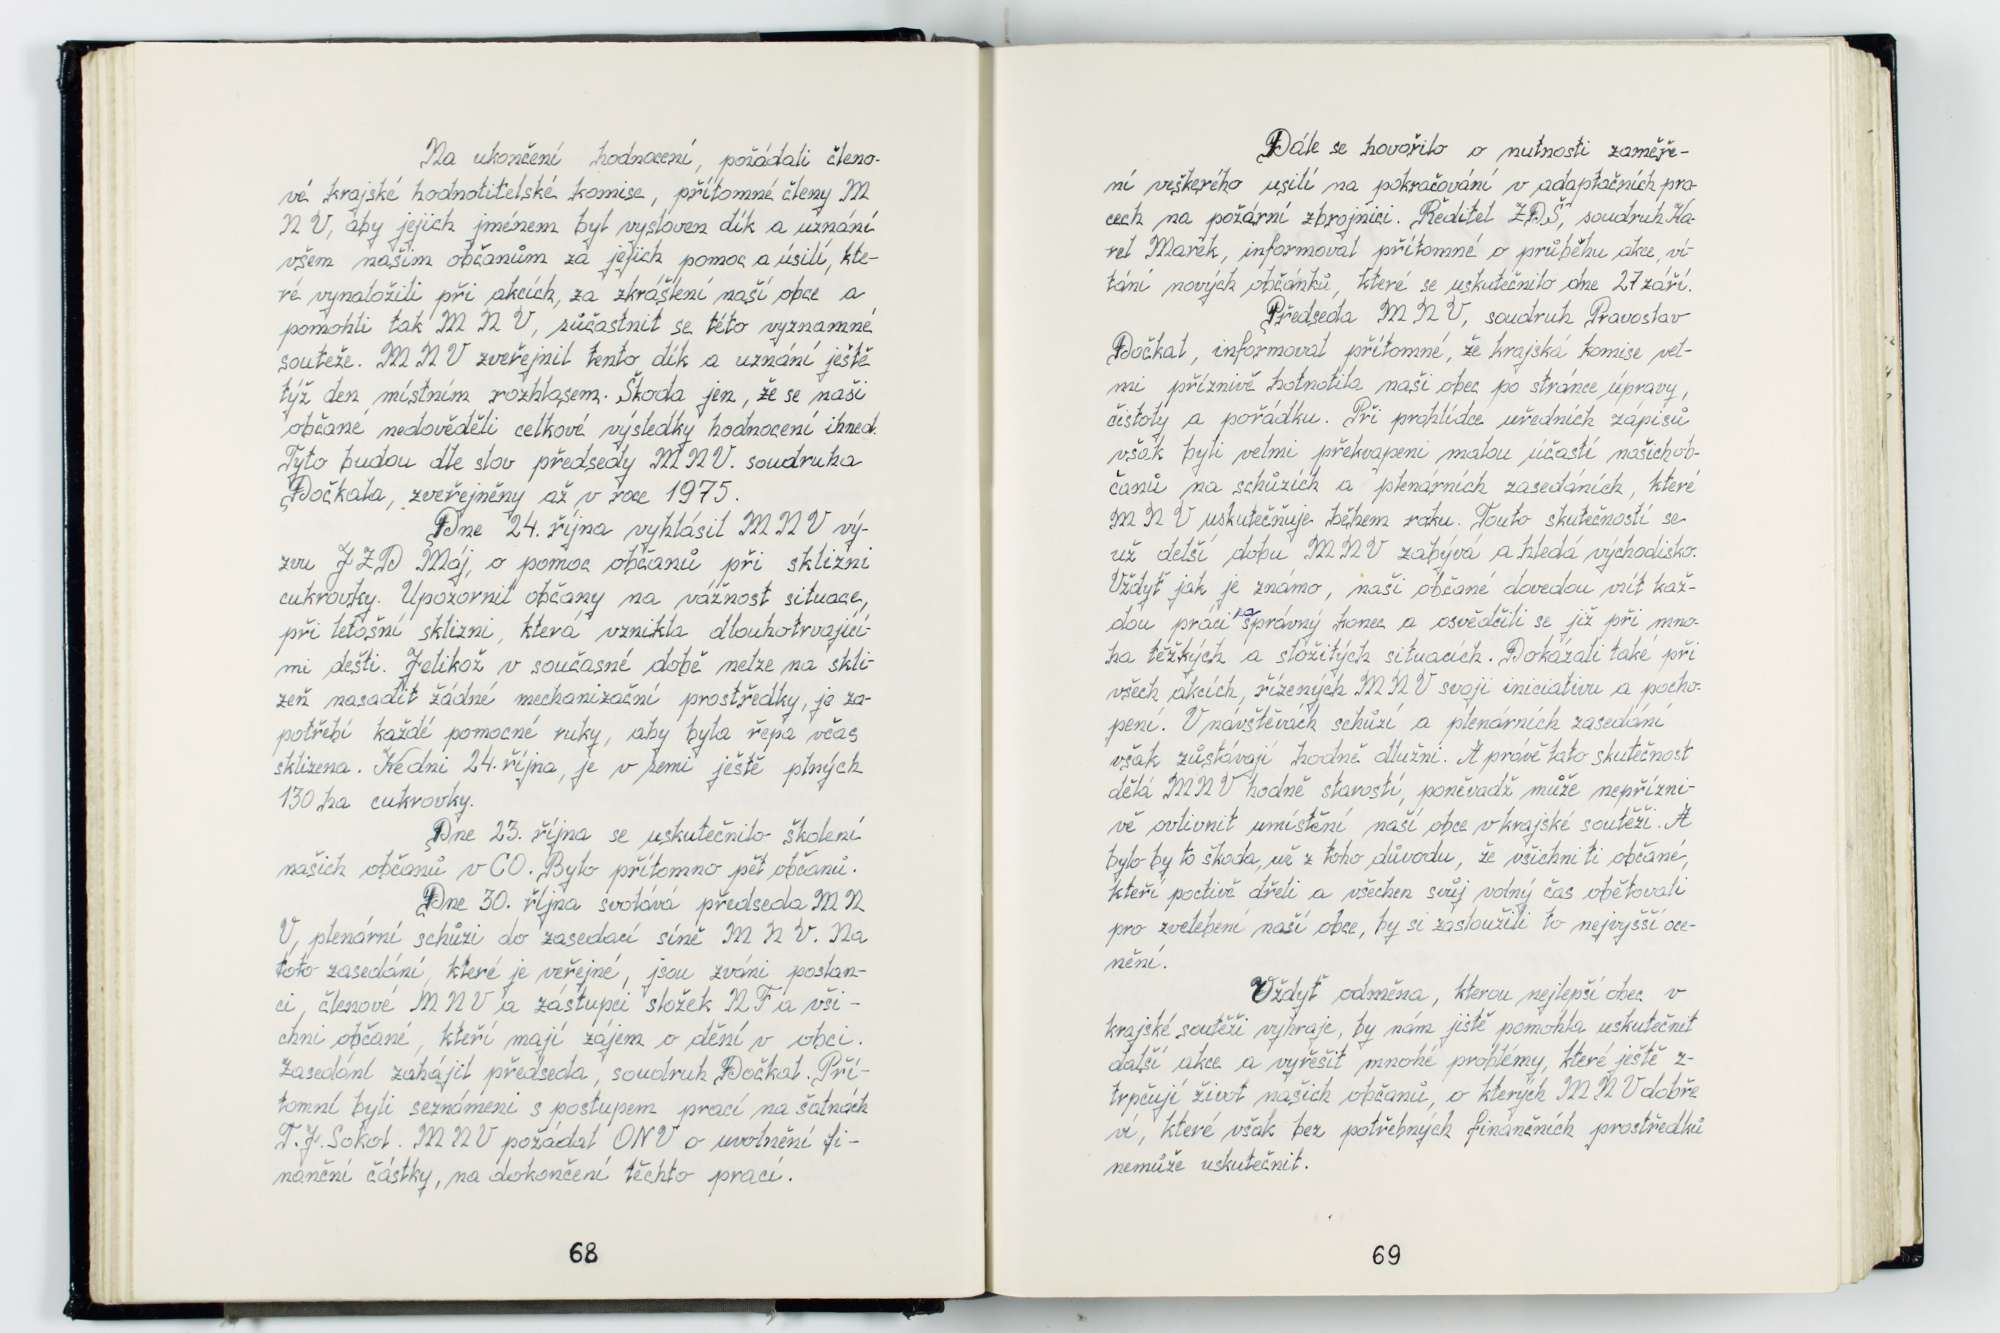 Na ukončení hodnocení, požádali členo-
vé krajské hodnotitelské komise, přítomné členy M
N V, aby jejich jménem byl vysloven dík a uznání
všem našim občanům za jejich pomoc a úsilí, kte-
ré vynaložili při akcích, za zkrášlení naší obce a
pomohli tak M N V, zůčastnit se této vyznamné
souteže. M N V zveřejnil tento dík a uznání ještě
týž den místním rozhlasem. Škoda jen, že se naši
občané nedověděli celkové výsledky hodnocení ihned.
Tyto budou dle slov předsedy M N V. soudruha
Dočkala, zveřejněny až v roce 1975.
Dne 24. října vyhlásil M N V vý-
zvu J Z D Máj, o pomoc občanů při sklizni
cukrovky. Upozornil občany na vážnost situace,
při letošní sklizni, která vznikla dlouhotrvající-
mi dešti. Jelikož v současné době nelze na skli-
zeň nasadit žádné mechanizační prostředky, je za-
potřebí každé pomocné ruky, aby byla řepa včas
sklizena. Kedni 24. října, je v zemi ještě plných
130 ha cukrovky.
Dne 23. října se uskutečnilo školení
našich občanů v CO. Bylo přítomno pět občanů.
Dne 30. října svolává předseda M N
V, plenární schůzi do zasedací síně M N V. Na
toto zasedání, které je veřejné, jsou zváni poslan-
ci, členové M N V a zástupci složek N F a vši-
chni občané, kteří mají zájem o dění v obci.
Zasedání zahájil předseda, soudruh Dočkal. Pří-
tomní byli seznámeni s postupem prací na šatnách
T. J. Sokol. M N V požádal ONV o uvolnění fi-
nanční částky, na dokončení těchto prací.
68
Dále se hovořilo o nutnosti zaměře-
ní veškerého usilí na pokračování v adaptačních pra-
cech na požární zbrojnici. Ředitel ZDŠ, soudruh Ka-
rel Marek, informoval přítomné o průběhu akce, ví-
tání nových občánků, které se uskutečnilo dne 27 září.
Předseda M N V, soudruh Pravoslav
Dočkal, informoval přítomné, že krajská komise vel-
mi příznivě hotnotila naši obec po stránce úpravy,
čistoty a pořádku. Při prohlídce uředních zápisů
však byli velmi překvapeni malou účastí našich ob-
čanů na schůzích a plenárních zasedáních, které
M N V uskutečňuje během roku. Touto skutečností se
už delší dobu M N V zabývá a hledá východisko.
Vždyť jak je známo, naši občané dovedou vzít kaž-
dou práci za správný konec a osvědčili se již při mno-
ha těžkých a složitých situacích. Dokázali také při
všech akcích, řízených M N V svoji iniciativu a pocho-
pení. V návštěvách schůzí a plenárních zasedání
však zůstávají hodně dlužni. A právě tato skutečnost
dělá M N V hodně starostí, poněvadž může nepřízni-
vě ovlivnit umístění naší obce v krajské soutěži. A
bylo by to škoda, už z toho důvodu, že všichni ti občané,
kteří poctivě dřeli a všechen svůj volný čas obětovali
pro zvelebení naší obce, by si zasloužili to nejvyšší oce-
nění.
Vždyť odměna, kterou nejlepší obec v
krajské soutěži vyhraje, by nám jistě pomohla uskutečnit
další akce a vyřešit mnohé problémy, které ještě z-
trpčují život našich občanů, o kterých M N V dobře
ví, které však bez potřebných finančních prostředků
nemůže uskutečnit.
69